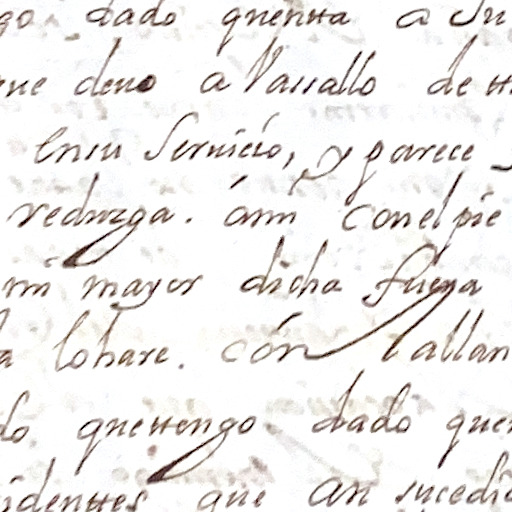 go dado quentta a Su
que devo a Vassallo de
ensu Servicio, y parece
reduzga. ámi conelpie
mi mayor dicha fuera
lo hare. cón
do quettengo dado quen
identtes que an sucedi